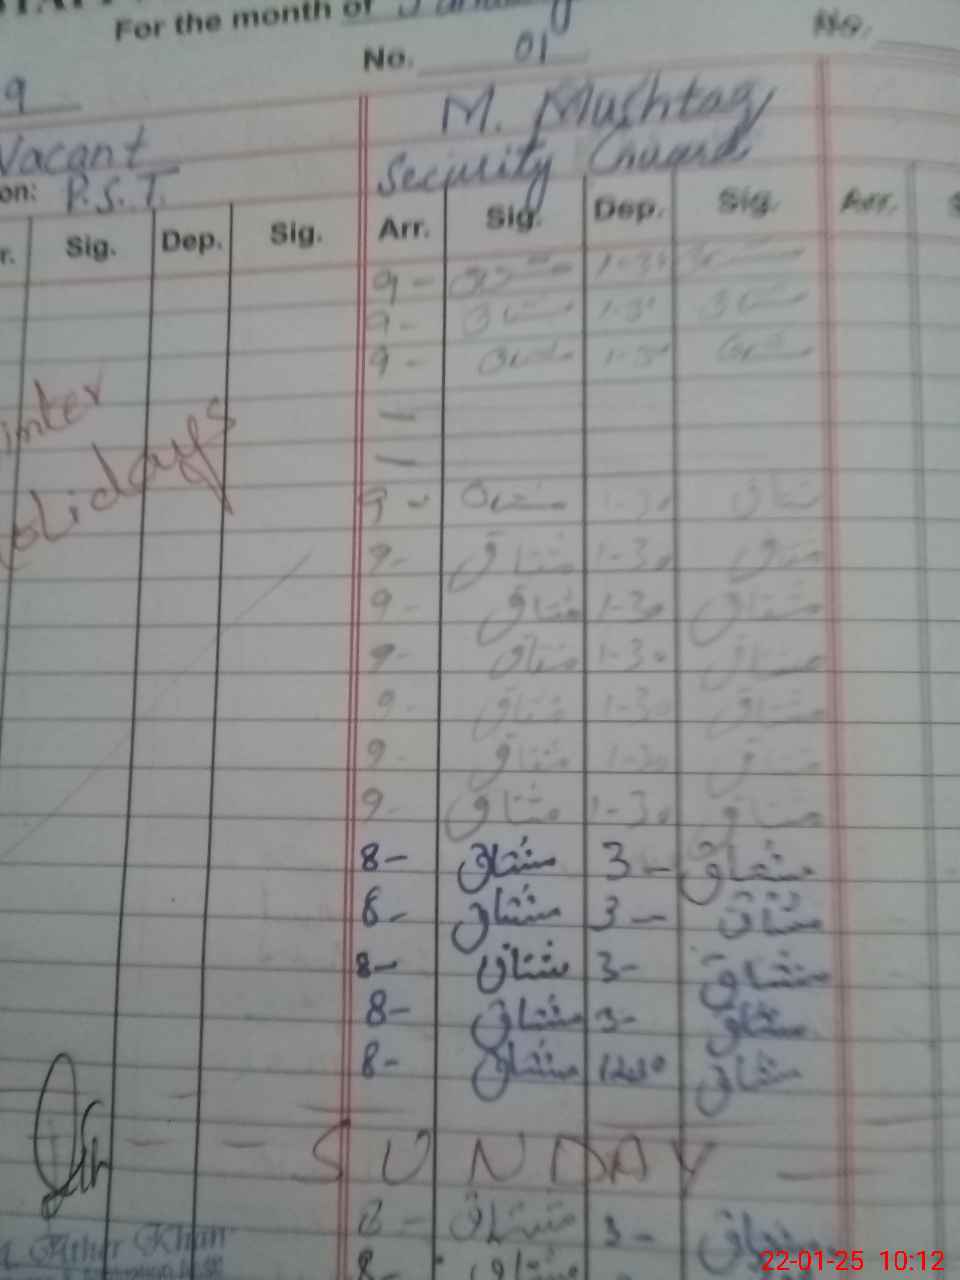 For the month of
No. 01 No.
9 M. Mushtaq
Vacant Security Guard
on: P.S.T.
r. Sig. Dep. Sig. Arr. Sig. Dep. Sig. Arr. S
9 - مشتاق 1-30 مشتاق
9 - مشتاق 1-30 مشتاق
9 - مشتاق 1-30 مشتاق
inter —
olidays —
9 - مشتاق 1-30 مشتاق
9 - مشتاق 1-30 مشتاق
9 - مشتاق 1-30 مشتاق
9 - مشتاق 1-30 مشتاق
9 - مشتاق 1-30 مشتاق
9 - مشتاق 1-30 مشتاق
9 - مشتاق 1-30 مشتاق
8 - مشتاق 3 - مشتاق
8 - مشتاق 3 - مشتاق
8 - مشتاق 3 - مشتاق
8 - مشتاق 3 - مشتاق
8 - مشتاق 12.30 مشتاق
SUNDAY
8 - مشتاق 3 - مشتاق
Ather Khan
8 - مشتاق
22-01-25 10:12